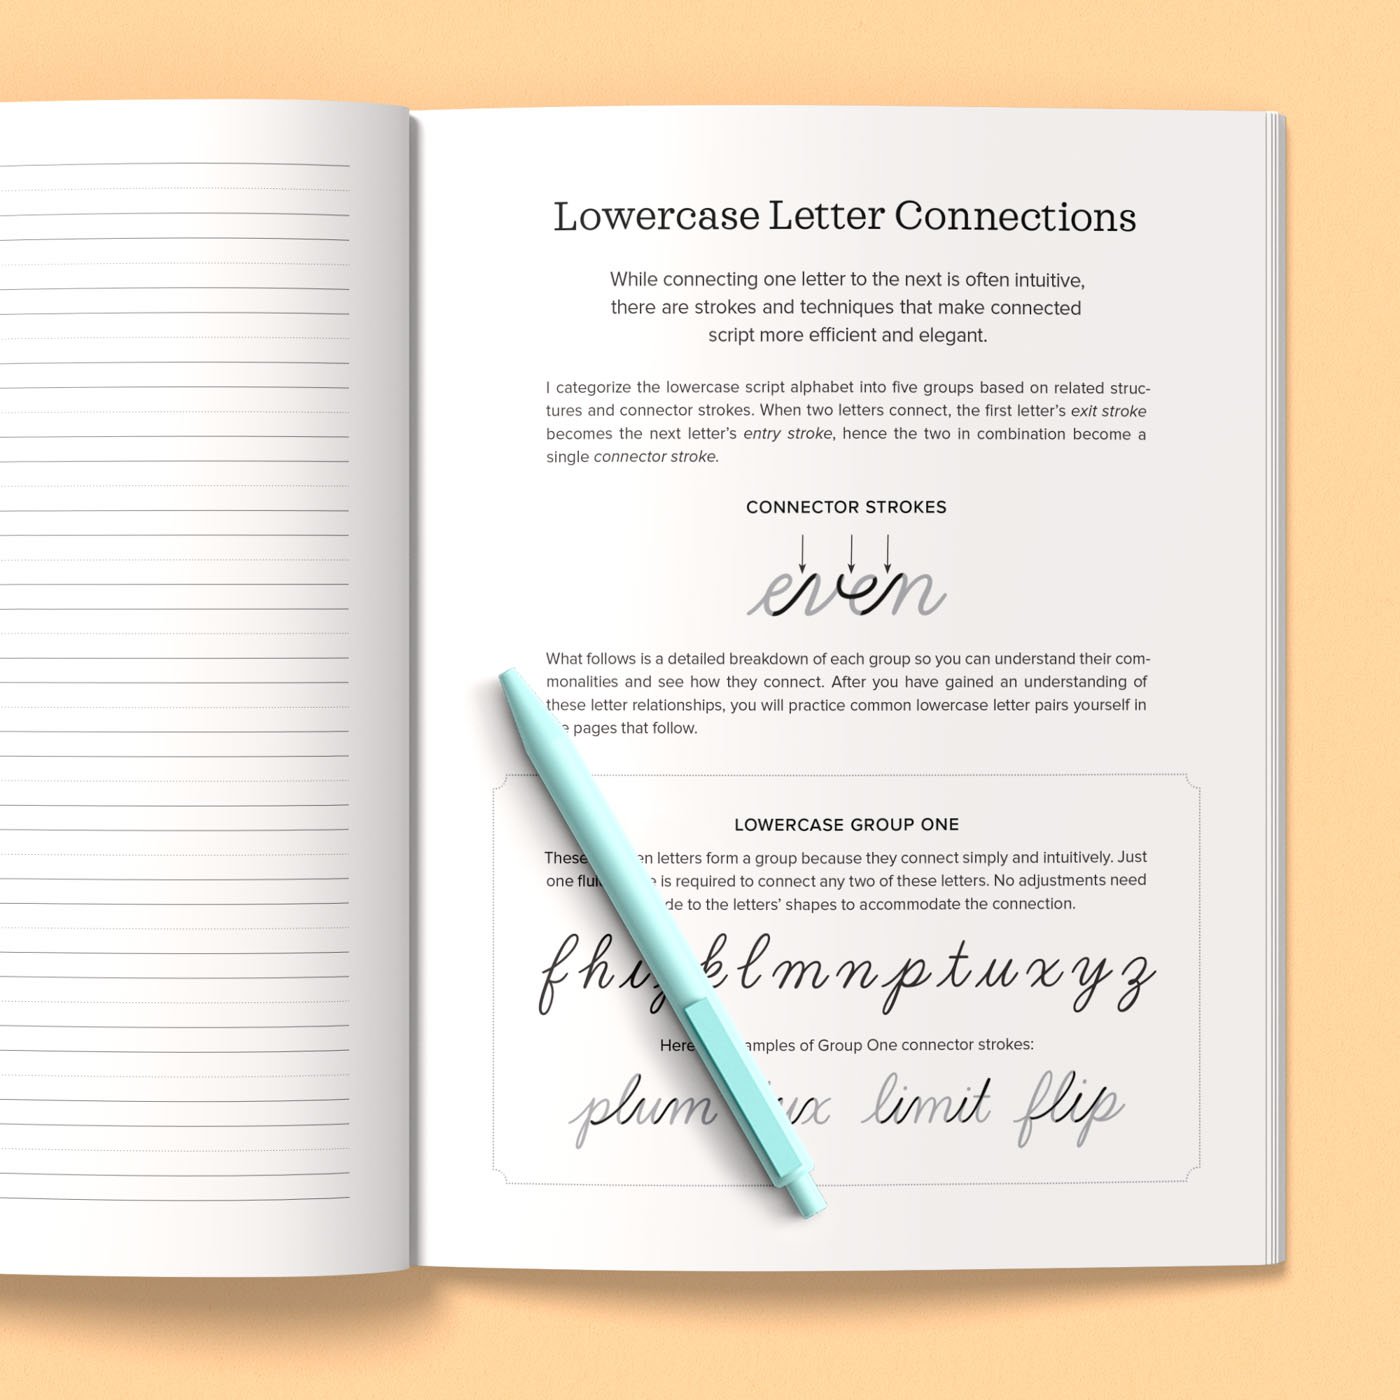 Lowercase Letter Connections
While connecting one letter to the next is often intuitive,
there are strokes and techniques that make connected
script more efficient and elegant.
I categorize the lowercase script alphabet into five groups based on related struc-
tures and connector strokes. When two letters connect, the first letter's exit stroke
becomes the next letter's entry stroke, hence the two in combination become a
single connector stroke.
CONNECTOR STROKES
even
What follows is a detailed breakdown of each group so you can understand their com-
monalities and see how they connect. After you have gained an understanding of
these letter relationships, you will practice common lowercase letter pairs yourself in
pages that follow.
LOWERCASE GROUP ONE
These letters form a group because they connect simply and intuitively. Just
one is required to connect any two of these letters. No adjustments need
to the letters' shapes to accommodate the connection.
f h i k l m n p t u x y z
Here of Group One connector strokes:
plum limit flip